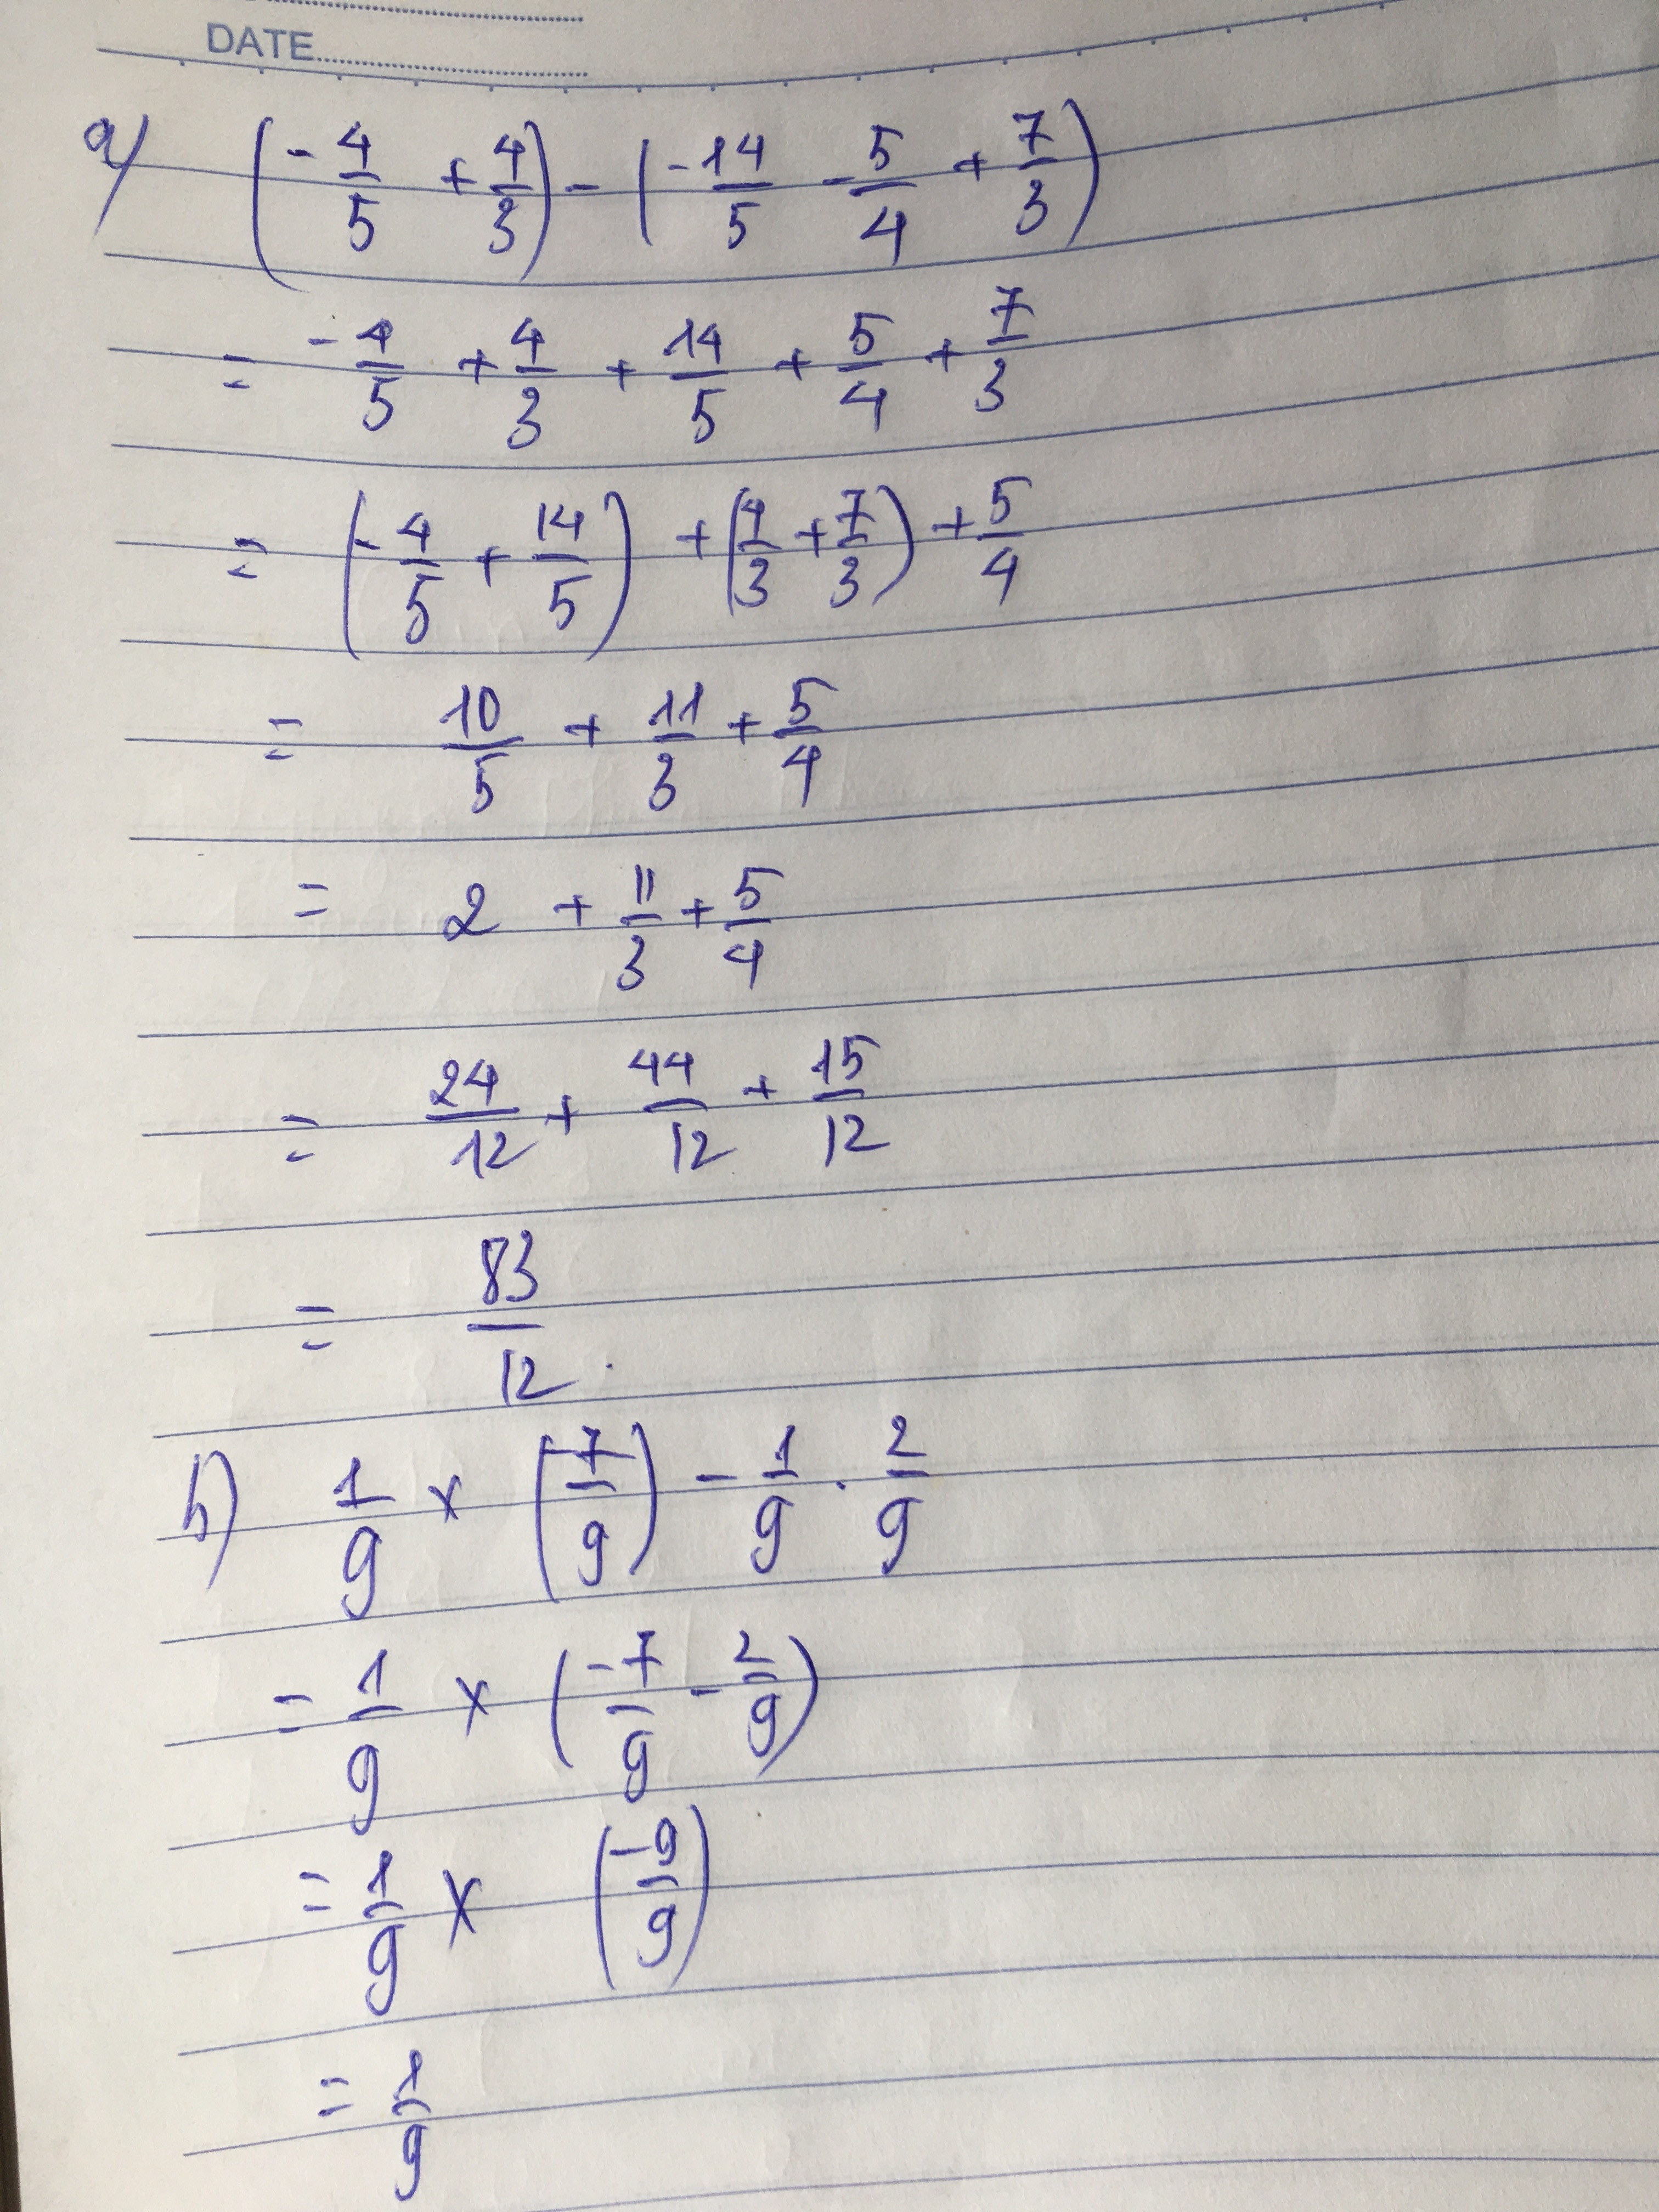 DATE
a) (-4/5 + 4/3) - (-14/5 - 5/4 + 7/3)
= -4/5 + 4/3 + 14/5 + 5/4 + 7/3
= (-4/5 + 14/5) + (4/3 + 7/3) + 5/4
= 10/5 + 11/3 + 5/4
= 2 + 11/3 + 5/4
= 24/12 + 44/12 + 15/12
= 83/12.
b) 1/9 × (-7/9) - 1/9 . 2/9
= 1/9 × (-7/9 - 2/9)
= 1/9 × (-9/9)
= 1/9